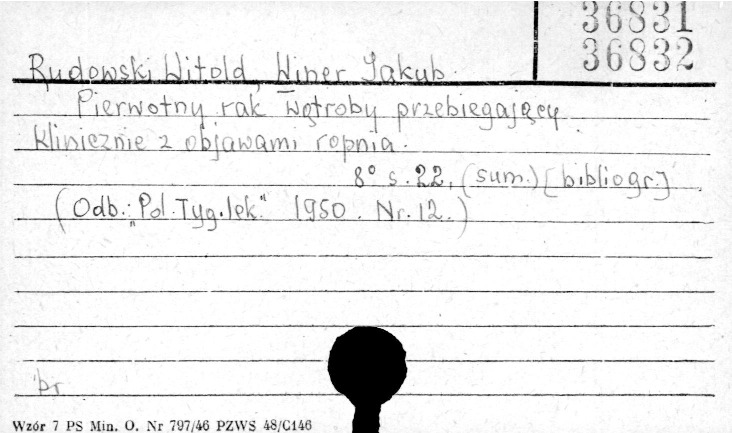 36831
36832
Rudowski Witold, Winer Jakub.
Pierwotny rak wątroby przebiegający
klinicznie z objawami ropnia.
8° s. 22, (sum.) [bibliogr.]
(Odb.: "Pol. Tyg. lek." 1950. Nr. 12.)
br
Wzór 7 PS Min. O. Nr 797/46 PZWS 48/C146